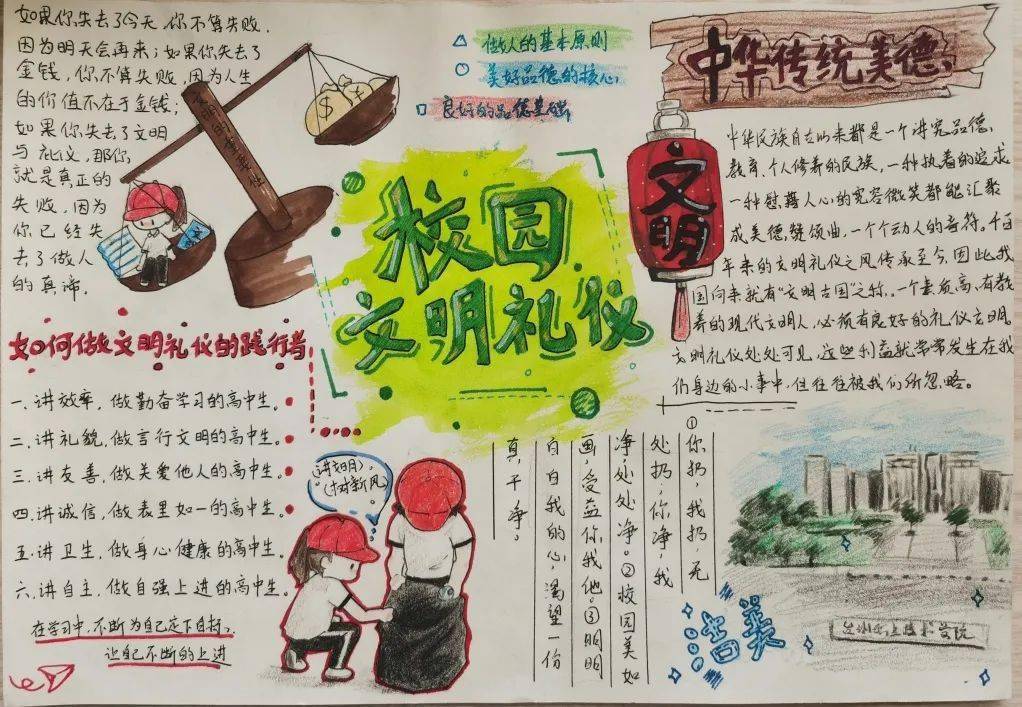 如果你失去了今天,你不算失败,
因为明天会再来;如果你失去了
金钱,你不算失败,因为人生
的价值不在于金钱;
如果你失去了文明
与礼仪,那你
就是真正的
失败,因为
你已经失
去了做人
的真谛.
$ $
△ 做人的基本原则
○ 美好品德的核心
□ 良好的品德基础
中华传统美德
文明
中华民族自古以来都是一个讲究品德、
教育、个人修养的民族,一种执着的追求
一种慰藉人心的宽容微笑都能汇聚
成美德赞颂曲,一个个动人的音符。千百
年来的文明礼仪之风传承至今,因此,我
国向来就有“文明古国”之称。一个素质高、有教
养的现代文明人,必须有良好的礼仪文明
文明礼仪处处可见,这些利益就常常发生在我
们身边的小事中,但往往被我们所忽略。
校园
文明礼仪
如何做文明礼仪的践行者
一.讲效率,做勤奋学习的高中生。
二.讲礼貌,做言行文明的高中生。
三.讲友善,做关爱他人的高中生。
四.讲诚信,做表里如一的高中生。
五.讲卫生,做身心健康的高中生。
六.讲自主,做自强上进的高中生。
在学习中,不断为自己定下目标,
让自己不断的上进
讲文明,
树新风
①你扔,我扔,无
处扔,你净,我
净,处处净。②校园美如
画,受益你我他。③明明
白白我的心,渴望一份
真干净。